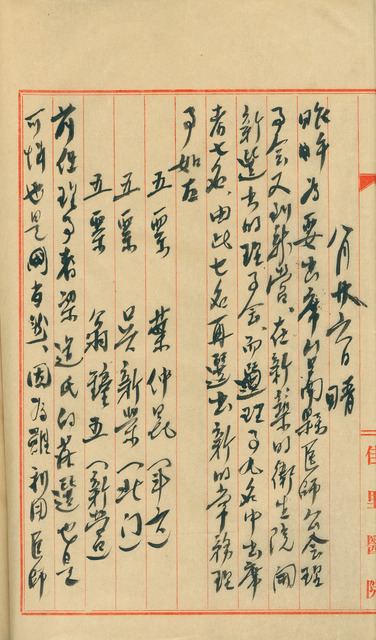 八月廿六日 晴
昨午為要出席台南縣医師公会理
事会又到新營、在新築的衛生院開
新選出的理事会、而選理事九名中出席
者七名、由此七名再選出新的常務理
事如左
五票 葉仲昆（軍方）
五票 吳新榮（北門）
五票 翁鐘五（新營）
前任理事者梁道氏的落選也是
可惜也是因為難利用医師
佳里醫院